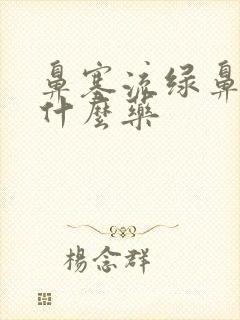 鼻塞流绿鼻
什麼藥
楊念群